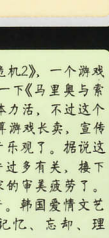 危机2》，一个游戏
一下《马里奥与索
本力活，不过这个
算游戏长卖，宣传
，乐观了。据说这
过多有关，接下
家的审美疲劳了。
。韩国爱情文艺
记忆、忘却、理